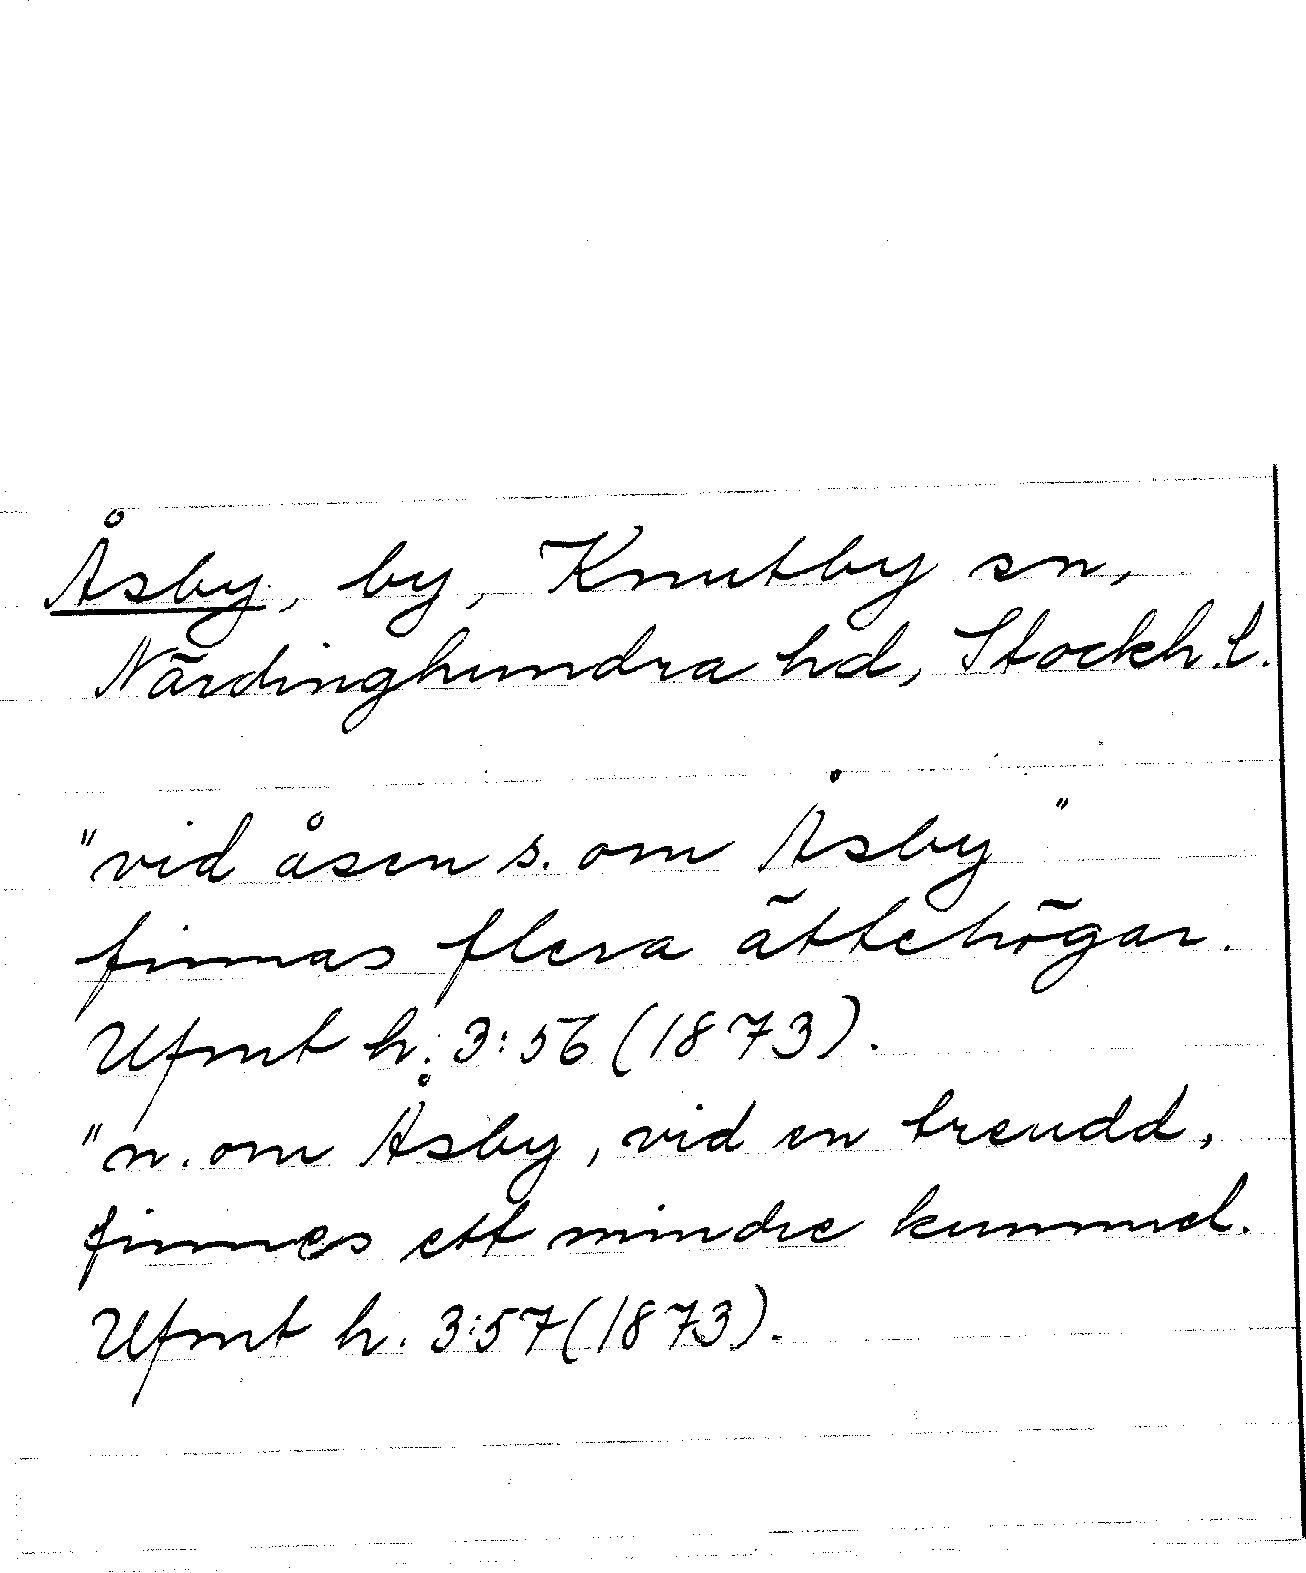 Åsby, by, Knutby sn,
Närdinghundra hd, Stockh.l.
"vid åsen s. om Åsby"
finnas flera ättehögar.
Ufmt h. 3:56 (1873).
"n. om Åsby, vid en treudd,
finnes ett mindre kummel.
Ufmt h. 3:57 (1873).